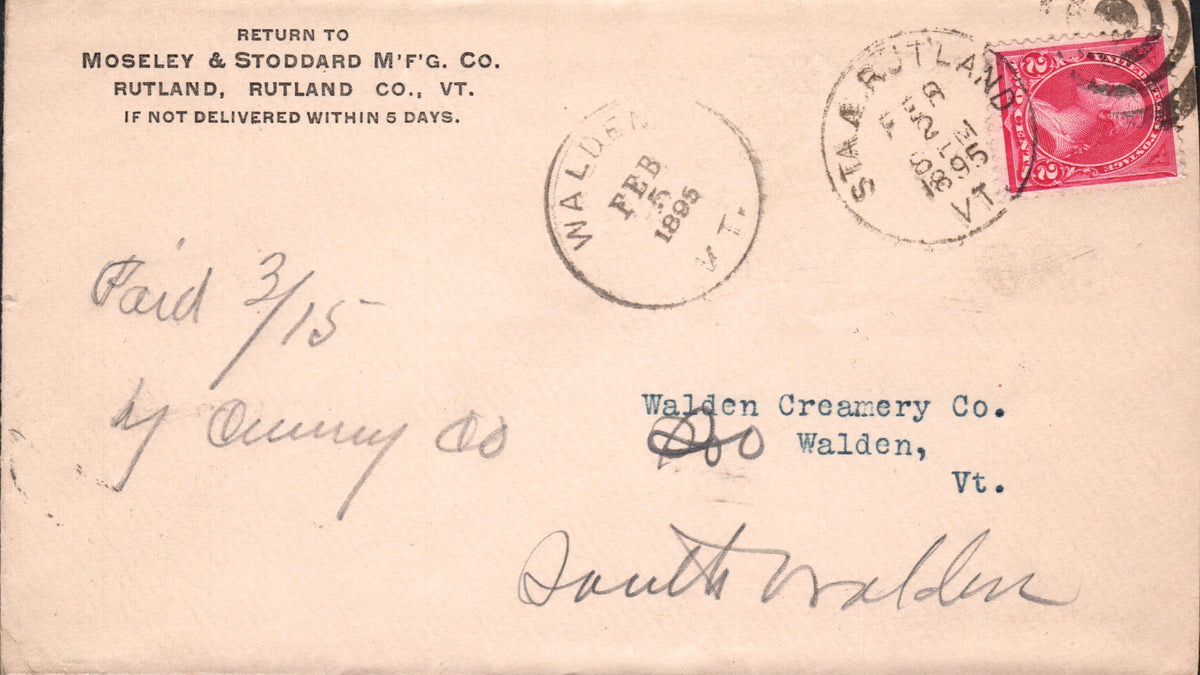 RETURN TO
MOSELEY & STODDARD M'F'G. CO.
RUTLAND, RUTLAND CO., VT.
IF NOT DELIVERED WITHIN 5 DAYS.
WALDEN
FEB
5
1895
VT.
STA. A. RUTLAND
FEB
1895
VT
2
2
Paid 3/15
by
Co
Walden Creamery Co.
Walden,
Vt.
South Walden